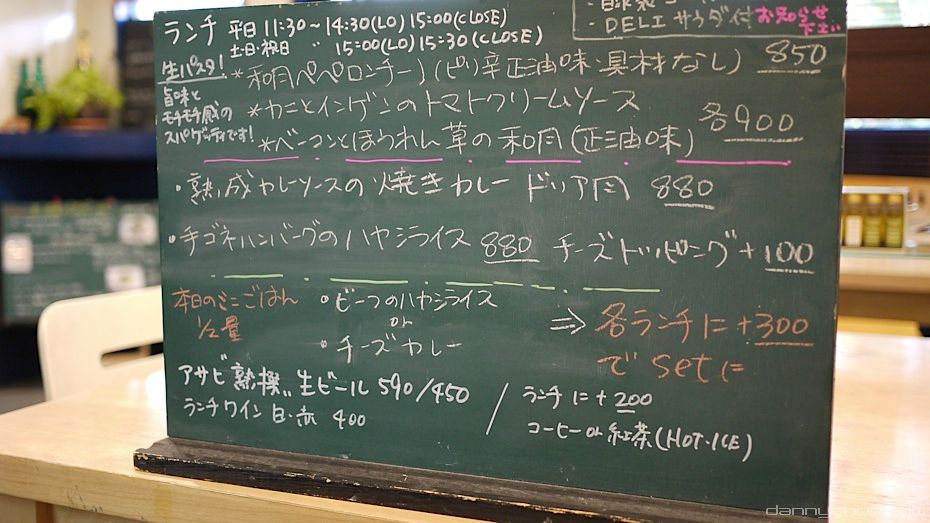 ランチ 平日 11:30~14:30(LO) 15:00(CLOSE)
土・日・祝日 〃 15:00(LO) 15:30(CLOSE)
・DELIサラダ付
お知らせ下さい
生パスタ!
旨味と
モチモチ感の
スパゲッティです!
*和風ペペロンチーノ(ピリ辛正油味・具材なし) 850
*カニとインゲンのトマトクリームソース
*ベーコンとほうれん草の和風(正油味) 各900
・熟成カレーソースの焼きカレードリア風 880
・手ゴネハンバーグのハヤシライス 880 チーズトッピング+100
本日のミニごはん
1/2量
・ビーフのハヤシライス
or
・チーズカレー
⇒ 各ランチに+300
でsetに
アサビ熟撰〃生ビール 590/450
ランチワイン 白・赤 400
/ ランチに+200
コーヒーor紅茶(HOT・ICE)